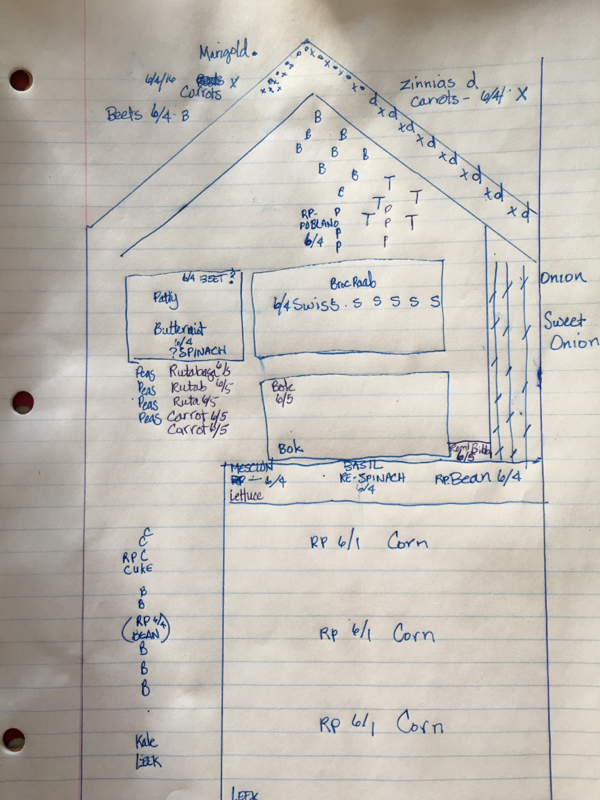 Marigold .
6/4/16 X
Carrots
Beets 6/4 B
Zinnias d
Carrots - 6/4/ X
o x o x o x o x o
d
x d
x d
x d
x d
x d
x d
x d
B
B B
B B
B B
C
T
T T
T T
RP-
POBLANO
6/4
P
P
P
P
P
P
P
6/4 BEET
Patty
Butternut
6/4
? SPINACH
Broc Raab
6/4 Swiss . S S S S S
Onion
Sweet
Onion
Peas Rutabaga 6/5
Peas Rutab 6/5
Peas Ruta 6/5
Peas Carrot 6/5
Carrot 6/5
Bok
6/5
Bok
6/5
MESCLUN
RP - 6/4
Lettuce
BASIL
RE-SPINACH
6/4
RP. Bean 6/4
C
C
RP C
CUKE
B
B
(RP 6/4
BEAN)
B
B
B
Kale
LEEK
RP 6/1 Corn
RP 6/1 Corn
RP 6/1 Corn
LEEK